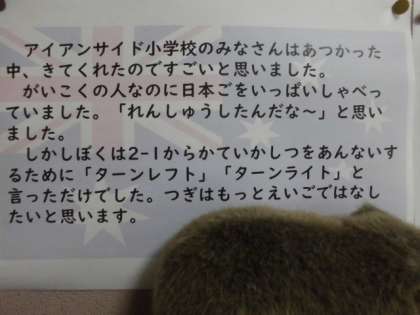 アイアンサイド小学校のみなさんはあつかった
中、きてくれたのですごいと思いました。
がいこくの人なのに日本ごをいっぱいしゃべっ
ていました。「れんしゅうしたんだな～」と思い
ました。
しかしぼくは2-1からかていかしつをあんないす
るために「ターンレフト」「ターンライト」と
言っただけでした。つぎはもっとえいごではなし
たいと思います。